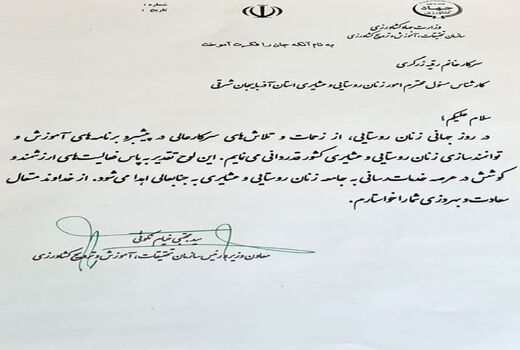 شماره :
تاریخ :
جهاد
کشاورزی
وزارت جهاد کشاورزی
سازمان تحقیقات، آموزش و ترویج کشاورزی
به نام آنکه جان را فکرت آموخت
سرکار خانم رقیه زرکری
کارشناس مسئول محترم امور زنان روستایی و عشایری استان آذربایجان شرقی
سلام علیکم؛
در روز جهانی زنان روستایی، از زحمات و تلاش‌های سرکارعالی در پیشبرد برنامه‌های آموزش و
توانمندسازی زنان روستایی و عشایری کشور قدردانی می‌نمایم. این لوح تقدیر به پاس فعالیت‌های ارزشمند و
کوشش در عرصه خدمات‌رسانی به جامعه زنان روستایی و عشایری به جنابعالی اهدا می‌شود. از خداوند متعال
سعادت و بهروزی شما را خواستارم.
سید مجتبی خیام نکوئی
معاون وزیر و رئیس سازمان تحقیقات، آموزش و ترویج کشاورزی